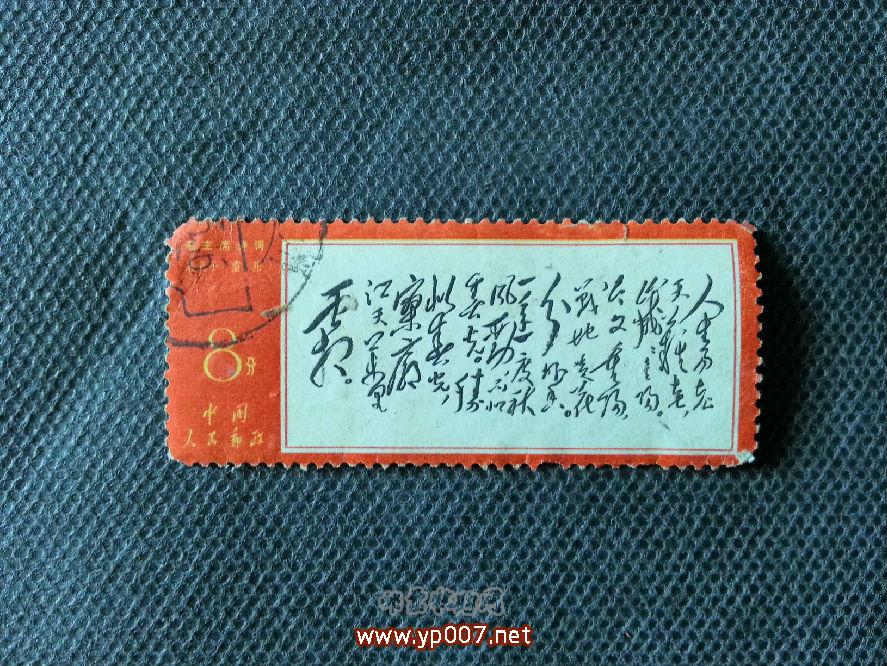 毛主席诗词
8分
中国
人民邮政
人生易老
天難老,
歲歲重陽。
今又重陽,
戰地黄花
分外香。
一年一度秋
風勁,不似
春光,勝
似春光,
寥廓
江天萬里
霜。
www.yp007.net